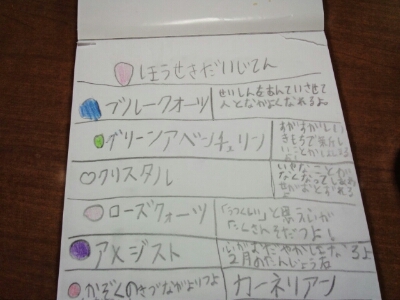 ほうせきだいじてん
ブルークォーツ
せいしんをあんていさせて
人となかよくなれるよ
グリーンアベンチュリン
すがすがしい
きもちで毎たし
クリスタル
なくなってしあわ
ローズクォーツ
「うつくしい」と思え心が
たくさんそだつよ
アメジスト
心がおだやかになるよ
2月のたんじょう石
かぞくのきづながよりつよ
カーネリアン